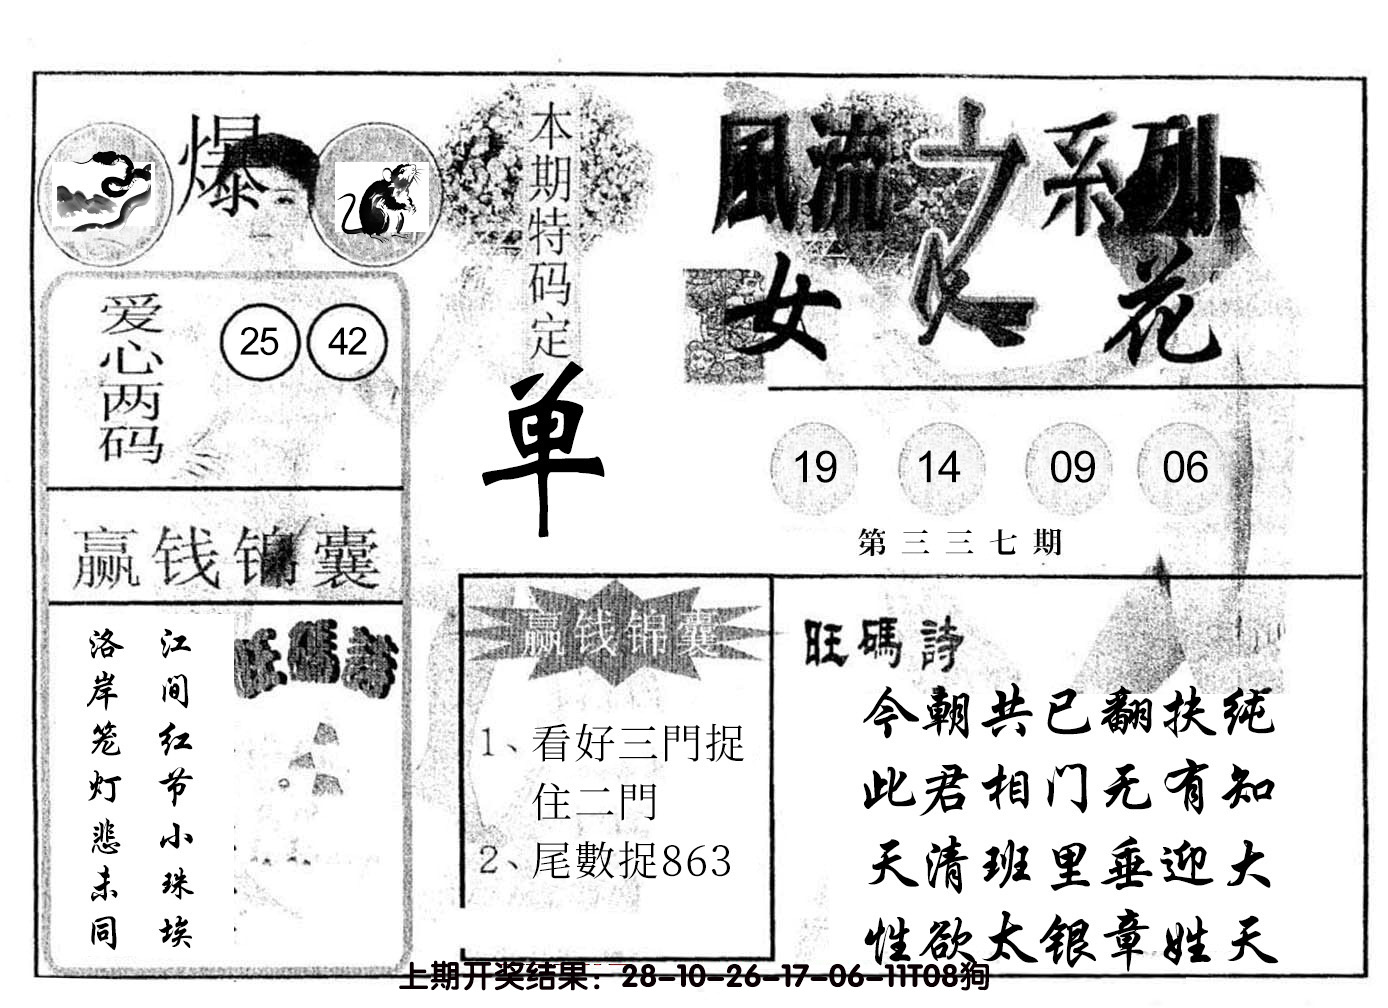 爆
本期特码定
单
爱心两码
25 42
赢钱锦囊
江间红节小珠埃
洛岸笼灯悲未同
旺碼詩
風流之系列
女人花
19 14 09 06
第三三七期
赢钱锦囊
1、看好三門捉
住二門
2、尾數捉863
旺碼詩
今朝共已翻扶纯
此君相门无有知
天清班里垂迎大
性欲太银章姓天
上期开奖结果：28-10-26-17-06-11T08狗